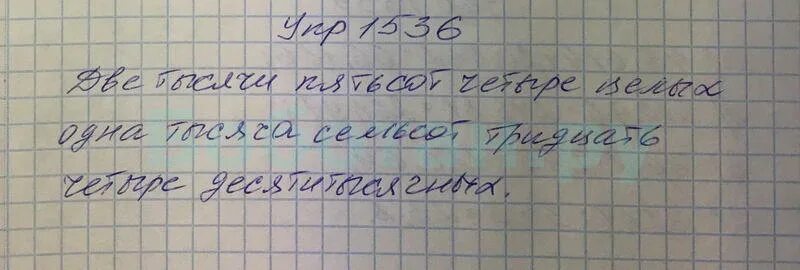 Упр 1536
Две тысячи пятьсот четыре целых
одна тысяча семьсот тридцать
четыре десятитысячных.